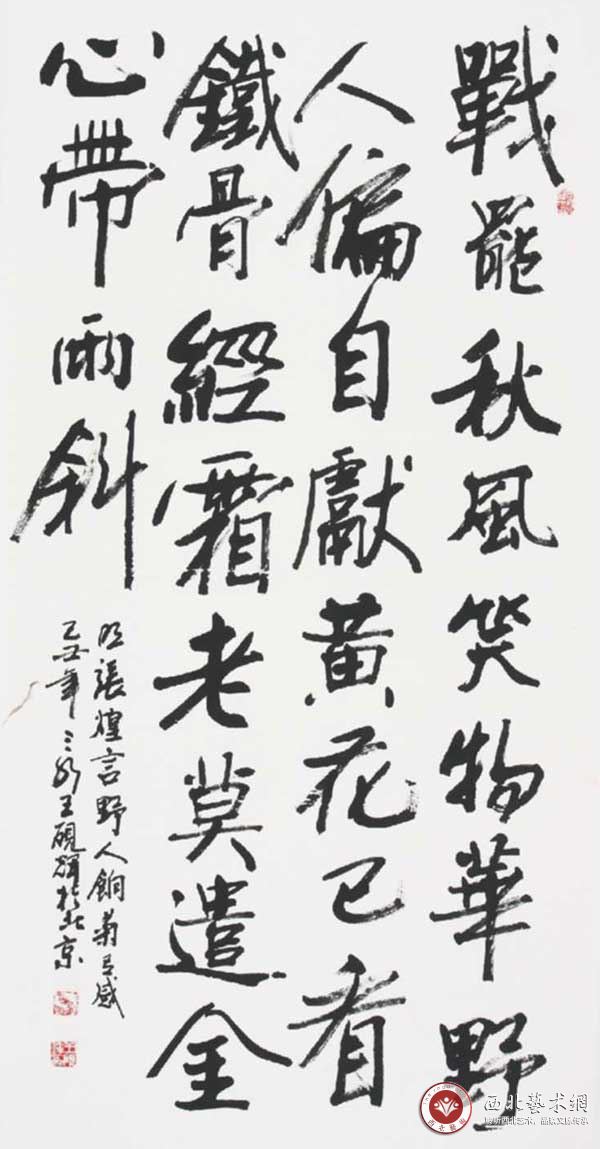 戰罷秋風笑物華野
人偏自獻黃花已看
鐵骨經霜老莫遣金
心帶雨斜
明張煌言野人餉菊有感
己丑年王硯輝於北京
西北藝术網